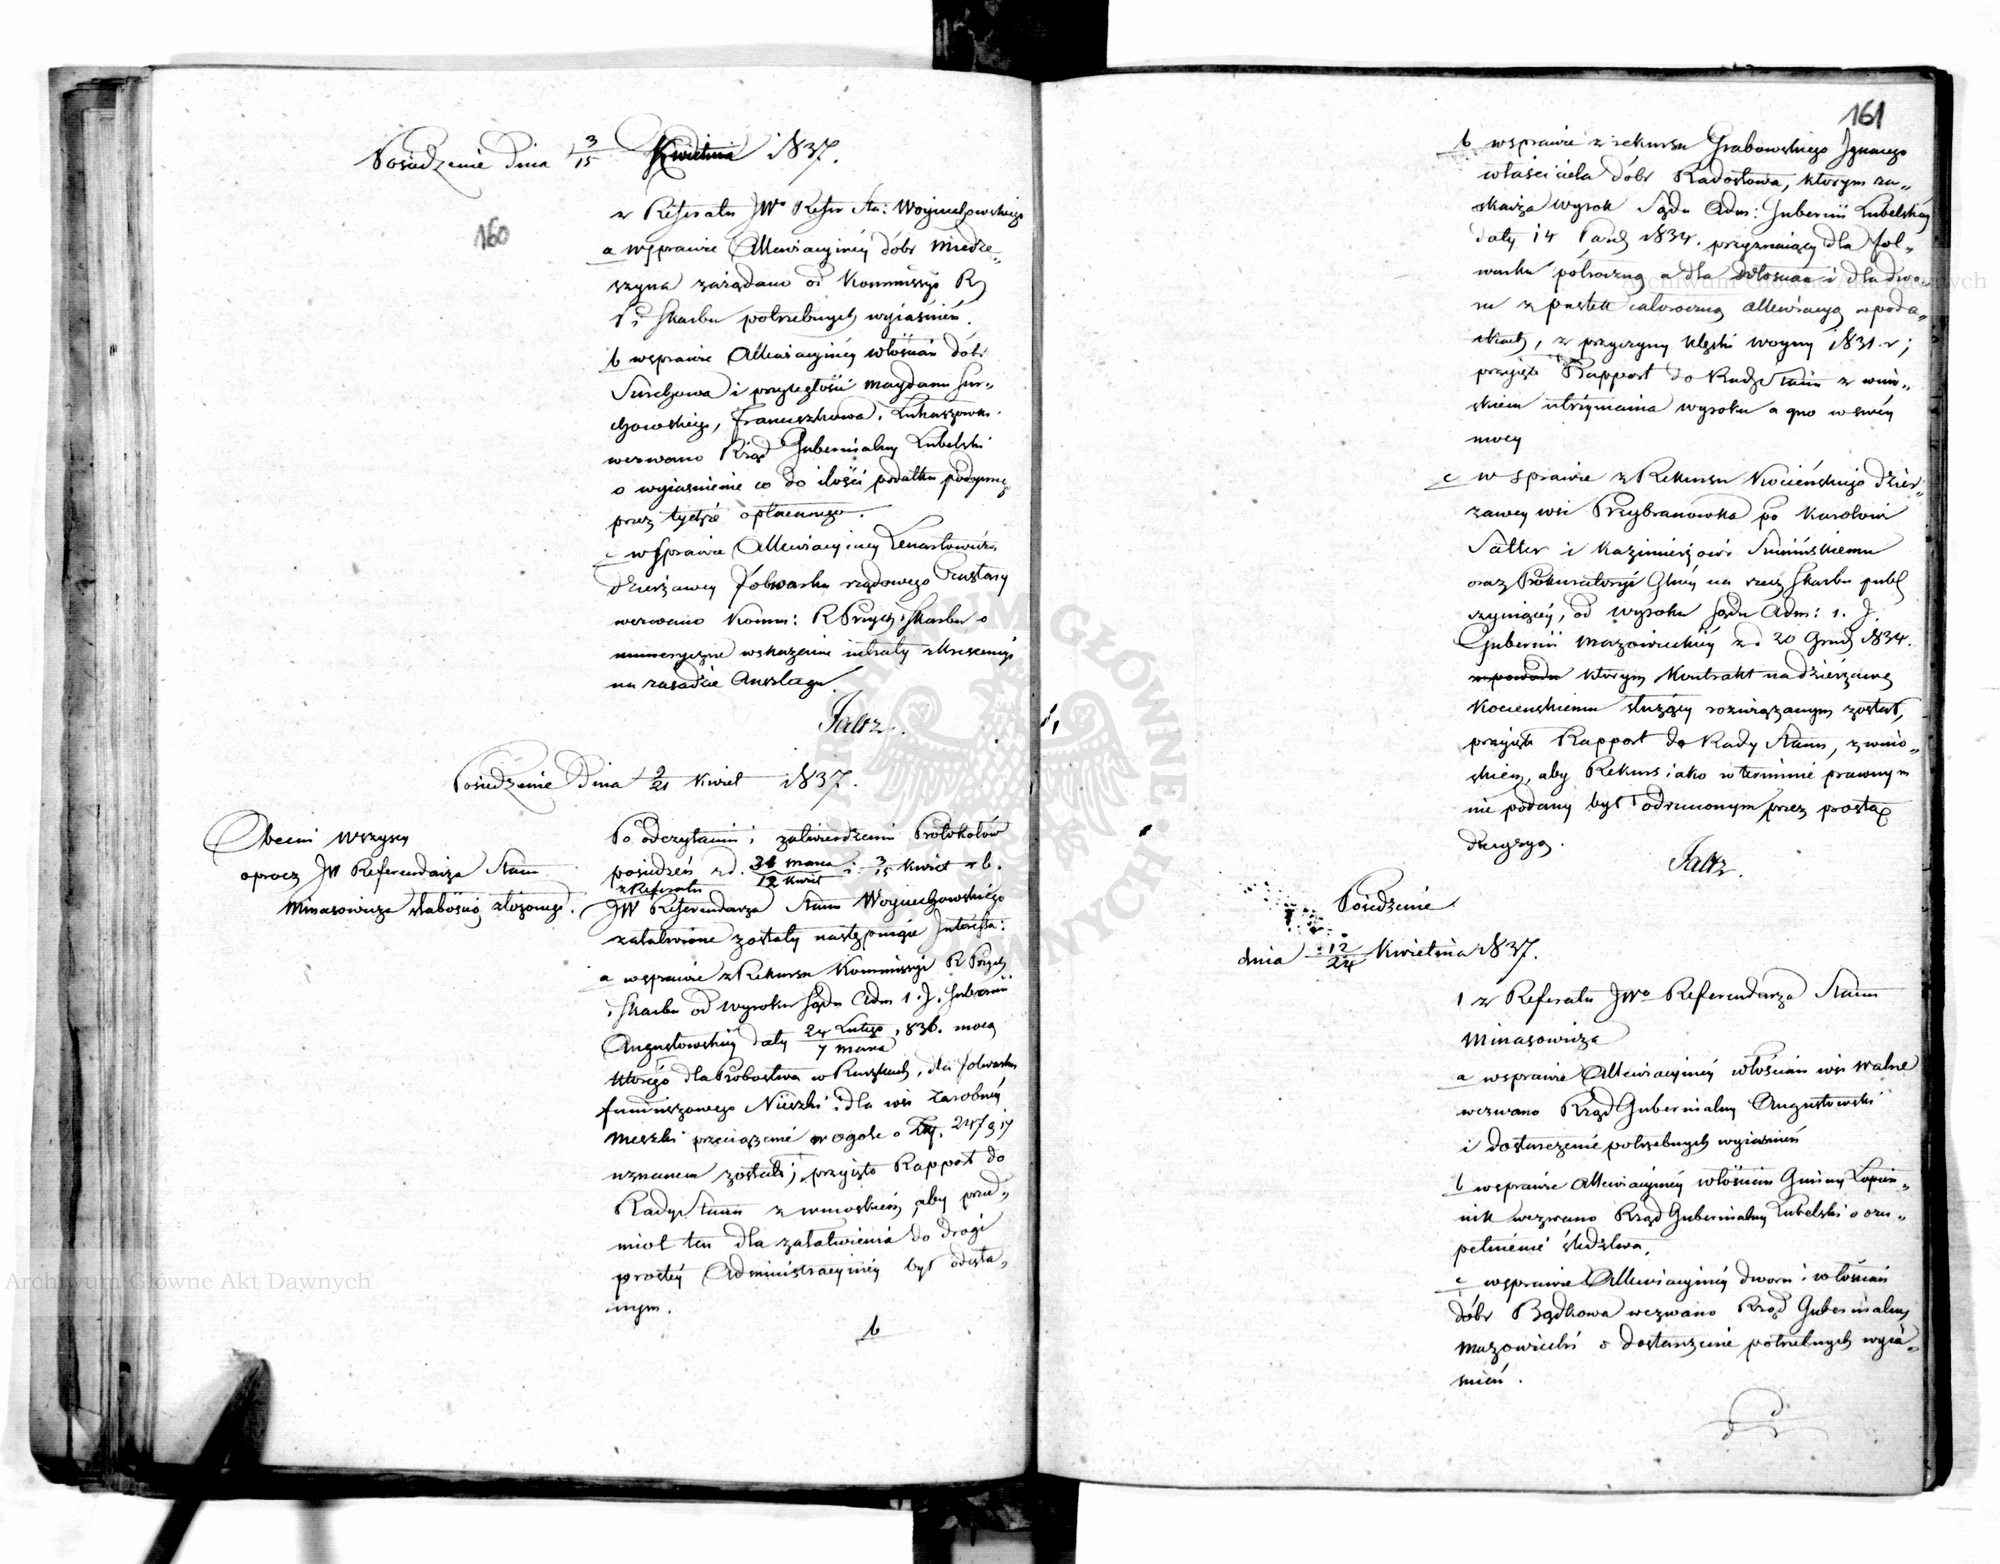 Posiedzenie Dnia 3/15 Kwietnia 1837.
160
z Referatu JWo Refer Sta: Woyciechowskiego
a wsprawie Allewiacyinéy dóbr Miedze„
szyna zażądano od Kommissyi R
P i Skarbu potrzebnych wyiaśnień.
b wsprawie Allewiacyinéy włościan dóbr
Surchowa i przyległości Maydanu Sur„
chowskiego, Franciszkowa, Łukaszówki
wezwano Rząd Gubernialny Lubelski
o wyiasnienie co do ilości podatku podymnego
przez tychże opłacanego.
c wsprawie Allewiacyiney Lenartowicza
dzierżawcy folwarku rządowego
wezwano Komm: R Przych i Skarbu o
numeryczne wskazanie intraty
na zasadzie Anszlagu.
Faltz.
Posiedzenie Dnia 9/21 Kwiet 1837.
Obecni Wszyscy
oprocz JW Referendarza Stanu
Minasowicza słabością złożonego.
Po odczytaniu i zatwierdzeniu Protokołów
posiedzeń z d. 31 Marca/12 Kwiet i 3/15 Kwiet r b.
z Referatu
JW Referendarza Stanu Woyciechowskiego
załatwione zostały następuiące Interessa:
a wsprawie z Rekursu Kommissyi R Przych
i Skarbu od wyroku Sądu Adm 1. I. Gubernii
Augustowskiéy daty 24 Lutego/7 Marca 1836. mocą
którego dla Probostwa w Ruszkach, dla folwarku
funduszowego Nieszki i dla wsi Zarobnéy
Nieszki przeciążenie w ogóle o Złp. 247 g 17
uznanem zostało; przyięto Rapport do
Rady Stanu z wnioskiem, aby przed„
miot ten dla załatwienia do drogi
prostéy Administracyinéy był odesła„
nym.
b
161
b wsprawie z rekursu Grabowskiego Ignacego
właściciela dóbr Radostowa, ktorym za„
skarża wyrok Sądu Adm: Gubernii Lubelskiéy
daty 14 Paźd 1834. przyznaiący dla fol„
warku półroczną a dla włościan i dla dwo„
ru z pustek całoroczną allewiacyą w poda„
tkach, z przyczyny klęski woyny 1831 r;
przyięto Rapport do Rady Stanu z wnio„
skiem utrzymania wyroku a quo w swéy
mocy
c w sprawie z Rekursu Kocieńskiego dzier„
żawcy wsi Przybranówka po Karolowi
Satter i Kazimierzowi Sumińskiemu
oraz Prokuratoryi Glnéy na rzecz Skarbu publ
czyniącéy, od wyroku Sądu Adm: 1. I.
Gubernii Mazowieckiéy z d 20 Grud 1834.
w powodu ktorym Kontrakt na dzierżawę
Kocienskiemu służący rozwiązanym został,
przyięto Rapport do Rady Stanu, z wnio„
skiem, aby Rekurs iako w terminie prawnym
nie podany był odrzuconym przez prostą
decyzyą.
Faltz.
Posiedzenie
dnia 12/24 Kwietnia 1837.
1 z Referatu JWo Referendarza Stanu
Minasowicza
a wsprawie Allewiacyinéy włościan wsi Walne
wezwano Rząd Gubernialny Augustowski
i dostarczenie potrzebnych wyiasnień
b wsprawie Allewiacyinéy włościan Gminy Łopien„
nik wezwano Rząd Gubernialny Lubelski o uzu„
pełnienie śledztwa,
c wsprawie Allewiacyinéy dworu i włościan
dóbr Bądkowa wezwano Rząd Gubernialny
Mazowiecki o dostarczenie potrzebnych wyia„
snień.
Archiwum Główne Akt Dawnych
Archiwum Główne Akt Dawnych
ARCHIWUM GŁÓWNE AKT DAWNYCH